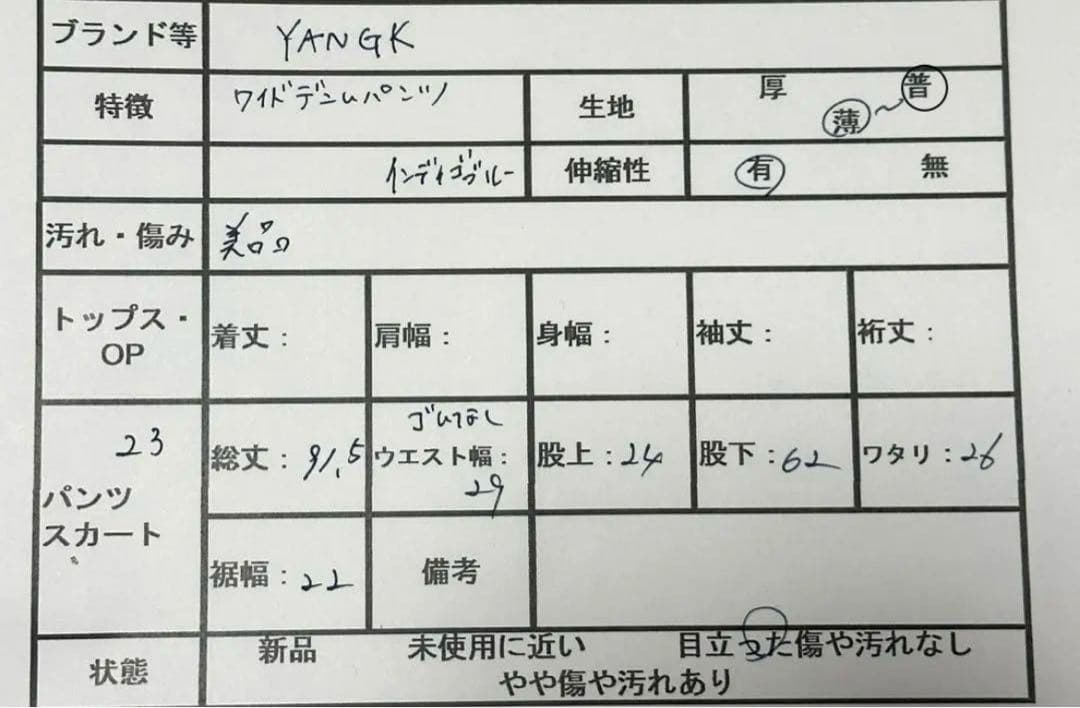 ブランド等 YANGK
特徴 ワイドデニムパンツ 生地 厚 薄～普
インディゴブルー 伸縮性 有 無
汚れ・傷み 美品
トップス・OP 着丈： 肩幅： 身幅： 袖丈： 裄丈：
23
パンツ
スカート
総丈：91.5
ゴムなし
ウエスト幅：
29
股上：24
股下：62
ワタリ：26
裾幅：22 備考
状態 新品 未使用に近い 目立った傷や汚れなし
やや傷や汚れあり